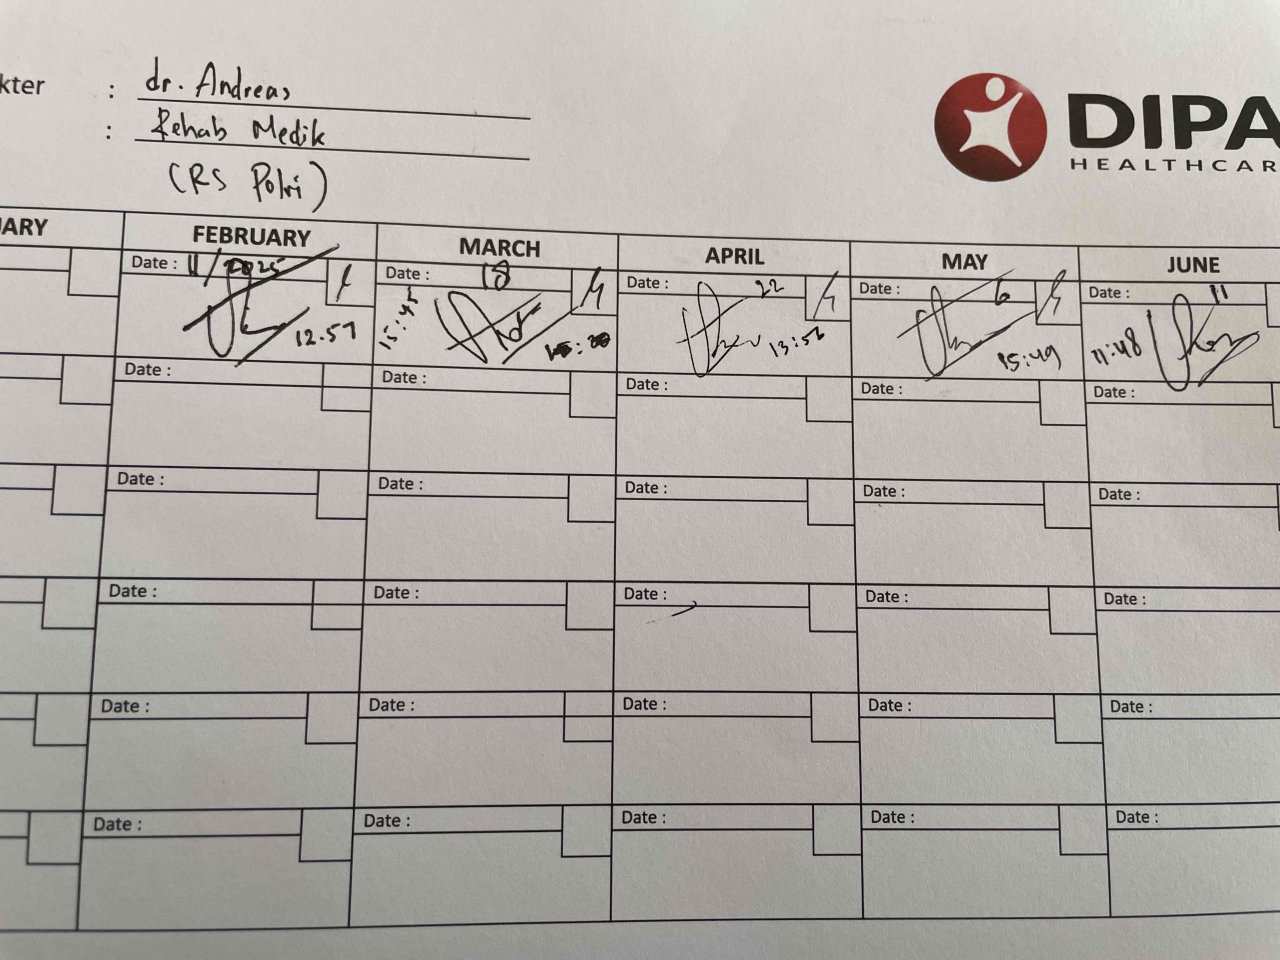 kter : dr. Andreas
: Rehab Medik
(RS Polri)
DIPA
HEALTHCAR
UARY FEBRUARY MARCH APRIL MAY JUNE
Date : 11/2025 Date : 18 Date : 22 Date : 6 Date : 11
12.57 15:45 13:52 15:49 11:48
Date : Date : Date : Date : Date :
Date : Date : Date : Date : Date :
Date : Date : Date : Date : Date :
Date : Date : Date : Date : Date :
Date : Date : Date : Date : Date :